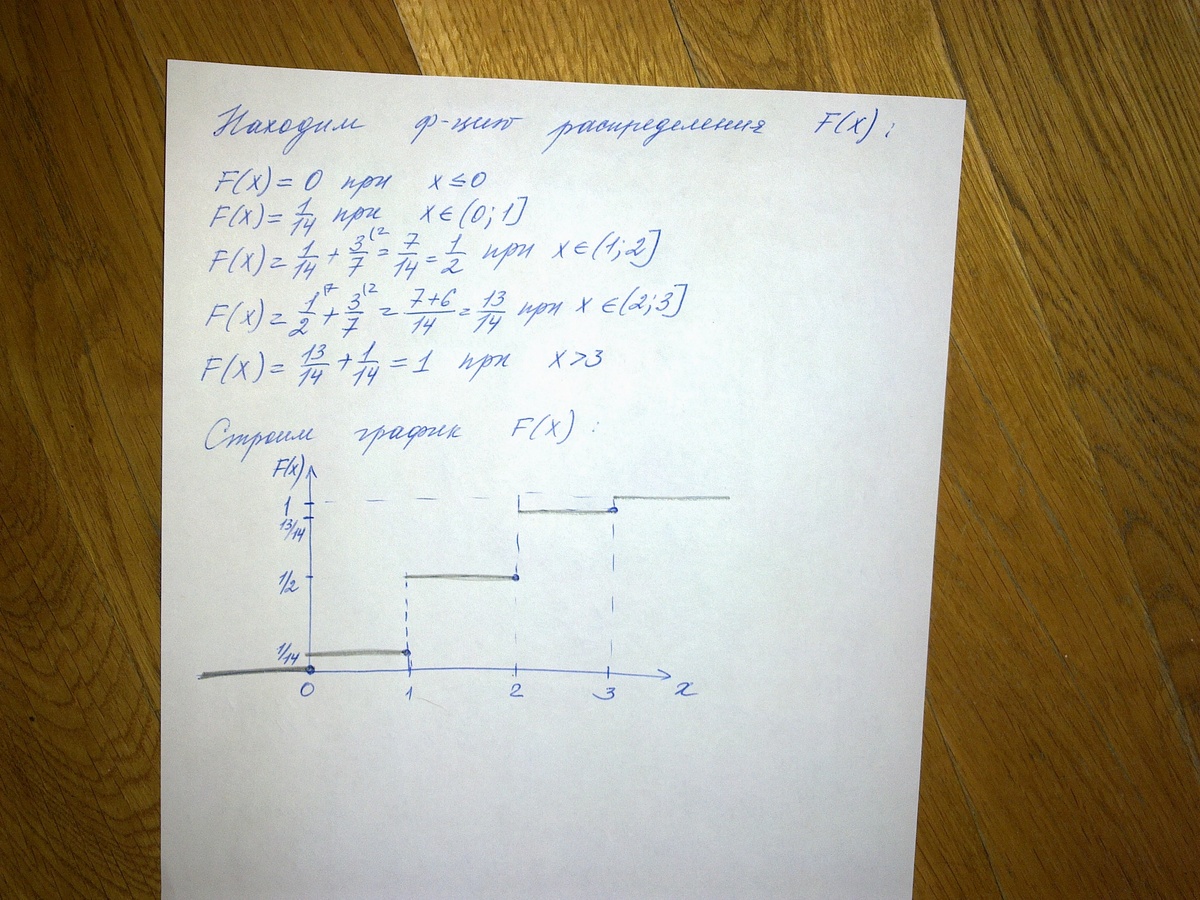 Находим ф-цию распределения F(x):
F(x) = 0 при x ≤ 0
F(x) = 1/14 при x ∈ (0; 1]
F(x) = 1/14 + 3/7 (2 = 7/14 = 1/2 при x ∈ (1; 2]
F(x) = 1/2 (7 + 3/7 (2 = 7+6/14 = 13/14 при x ∈ (2; 3]
F(x) = 13/14 + 1/14 = 1 при x > 3
Строим график F(x):
F(x)
1
13/14
1/2
1/14
0 1 2 3 x